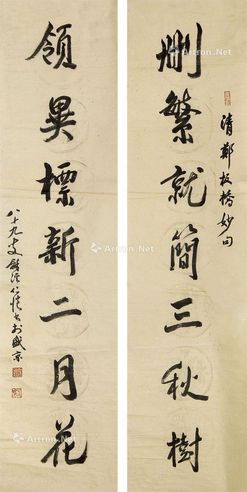 清鄭板橋妙句
刪繁就簡三秋樹
領異標新二月花
八十九叟
於盛京
Artron.Net
Artron.Net